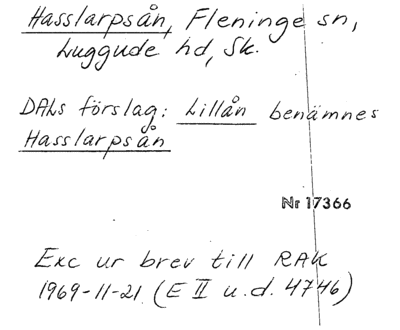 Hasslarpsån, Fleninge sn,
Luggude hd, Sk.
DALs förslag: Lillån benämnes
Hasslarpsån
Nr 17366
Exc ur brev till RAK
1969-11-21 (E II u.d. 4746)